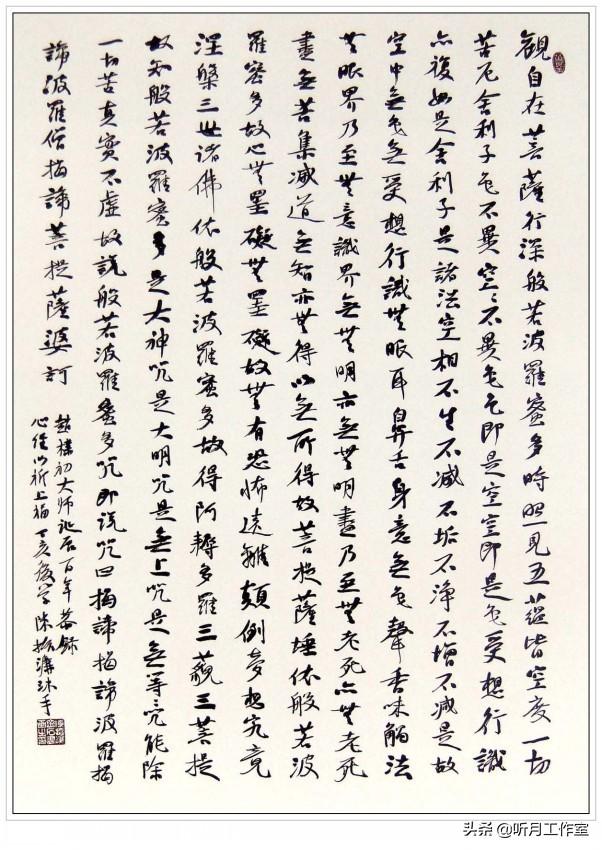 觀自在菩薩行深般若波羅蜜多時照見五蘊皆空度一切
苦厄舍利子色不異空〻不異色色即是空空即是色受想行識
亦復如是舍利子是諸法空相不生不滅不垢不淨不增不減是故
空中無色無受想行識無眼耳鼻舌身意無色聲香味觸法
無眼界乃至無意識界無無明亦無無明盡乃至無老死亦無老死
盡無苦集滅道無智亦無得以無所得故菩提薩埵依般若波
羅蜜多故心無罣礙無罣礙故無有恐怖遠離顛倒夢想究竟
涅槃三世諸佛依般若波羅蜜多故得阿耨多羅三藐三菩提
故知般若波羅蜜多是大神咒是大明咒是無上咒是無等咒能除
一切苦真實不虛故說般若波羅蜜多咒即說咒曰揭諦揭諦波羅揭
諦波羅僧揭諦菩提薩婆訶
趙樸初大師誕辰百年恭錄
心經以祈上福丁亥後學陳振濂沐手
头条 @听月工作室